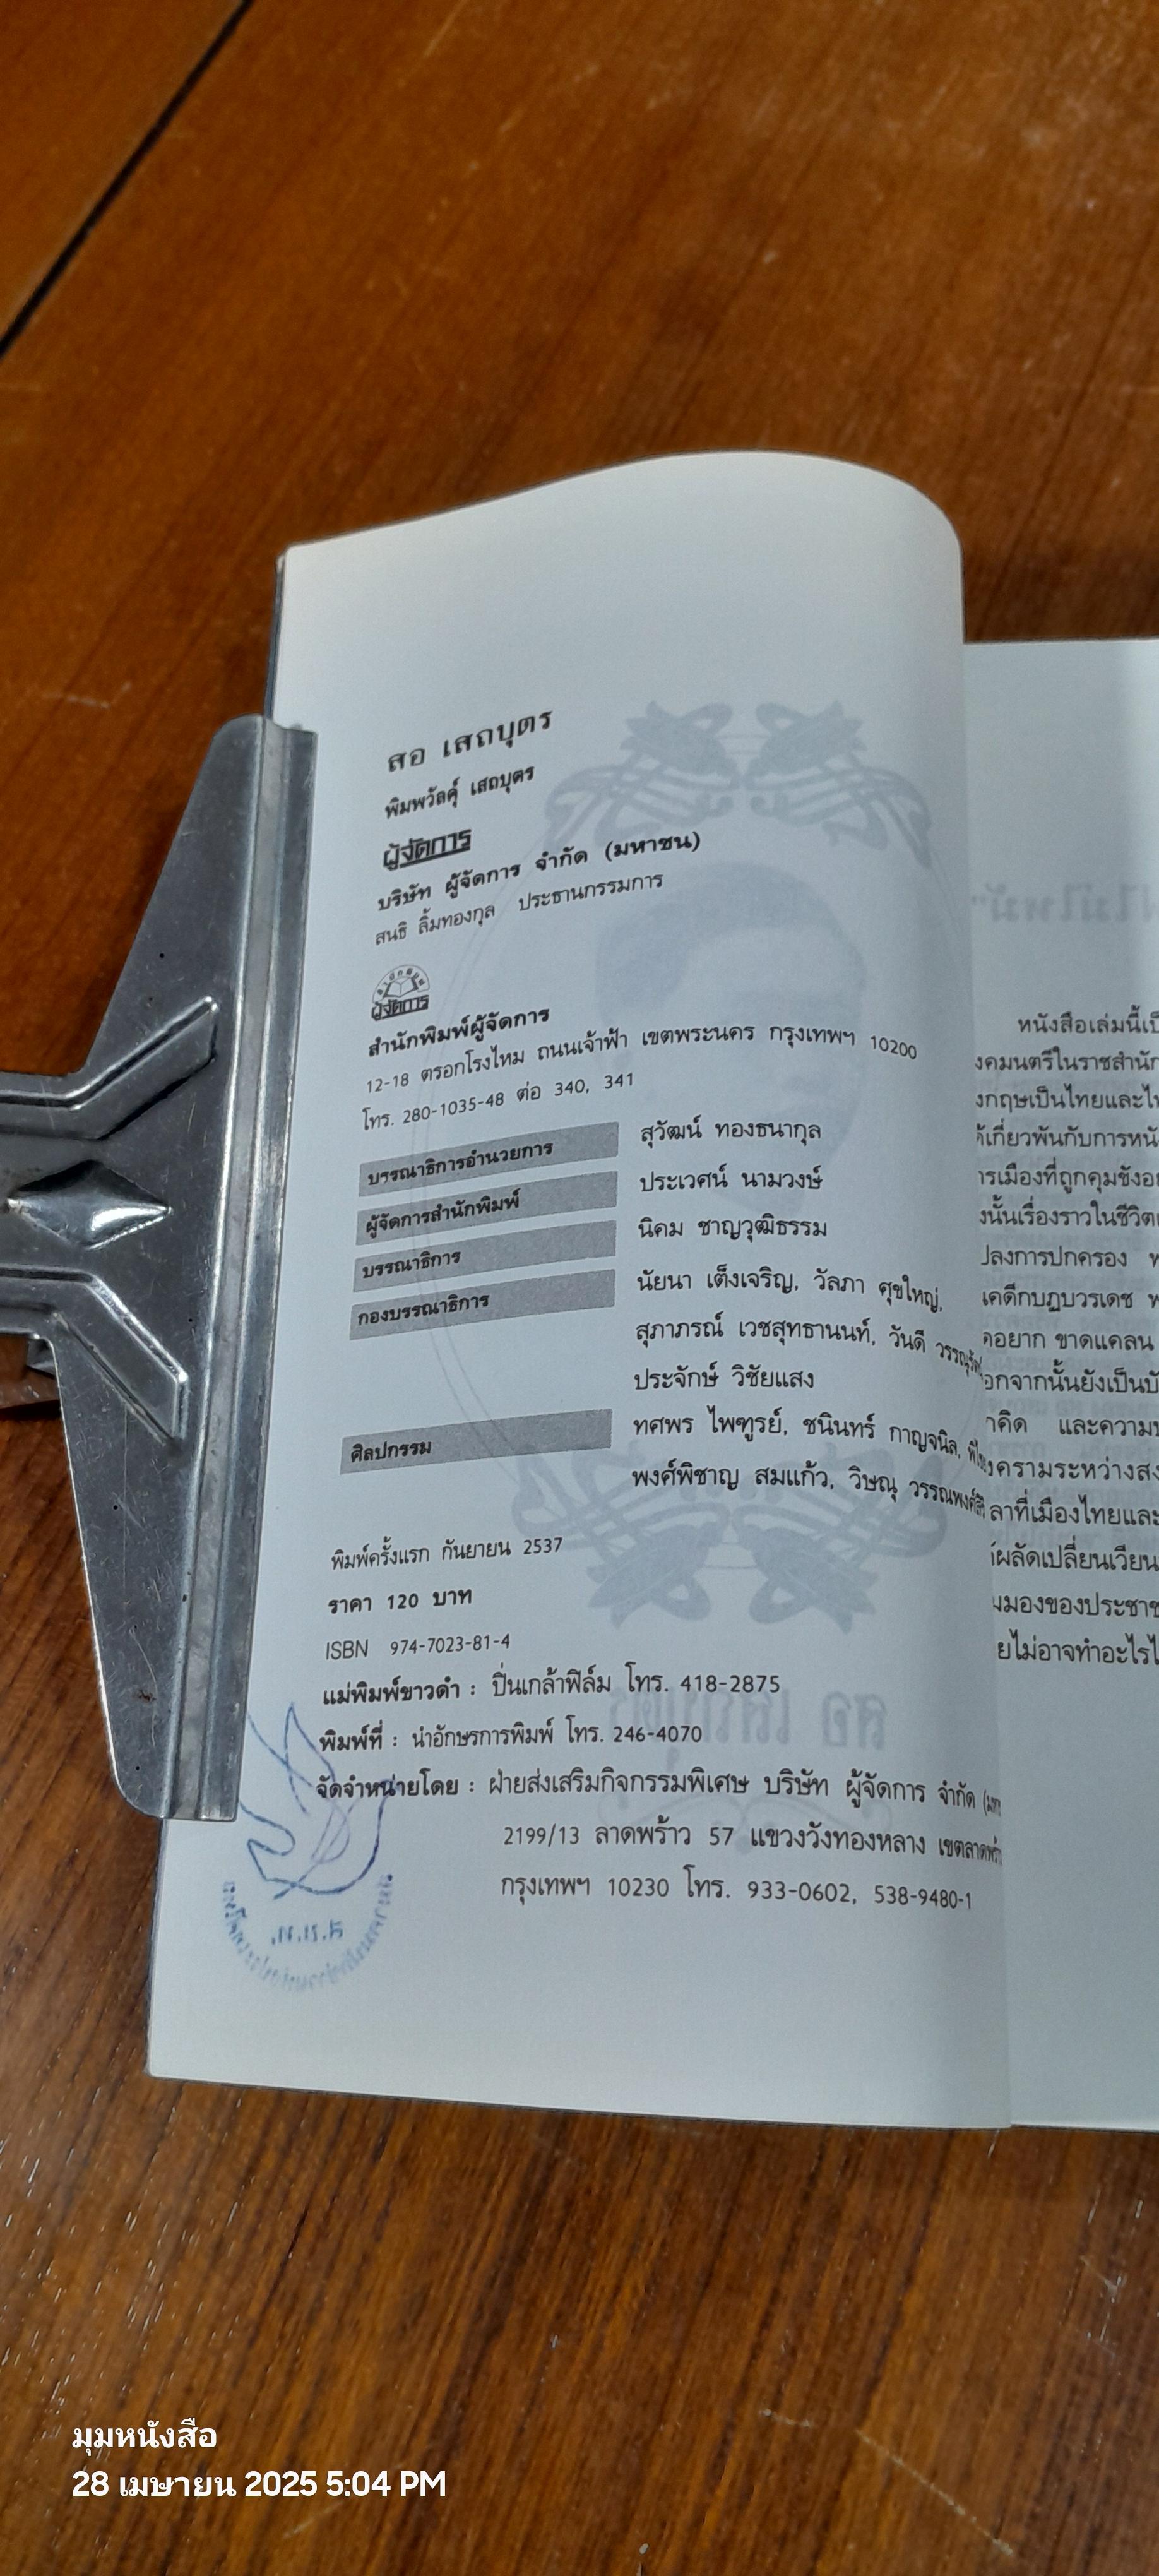 สอ เสถบุตร
พิมพวัลคุ์ เสถบุตร
ผู้จัดการ
บริษัท ผู้จัดการ จำกัด (มหาชน)
สนธิ ลิ้มทองกุล ประธานกรรมการ
ผู้จัดการ
สำนักพิมพ์ผู้จัดการ
12-18 ตรอกโรงไหม ถนนเจ้าฟ้า เขตพระนคร กรุงเทพฯ 10200
โทร. 280-1035-48 ต่อ 340, 341
บรรณาธิการอำนวยการ สุวัฒน์ ทองธนากุล
ผู้จัดการสำนักพิมพ์ ประเวศน์ นามวงษ์
บรรณาธิการ นิคม ชาญวุฒิธรรม
กองบรรณาธิการ นัยนา เต็งเจริญ, วัลภา ศุขใหญ่,
สุภาภรณ์ เวชสุทธานนท์, วันดี
ประจักษ์ วิชัยแสง
ศิลปกรรม ทศพร ไพฑูรย์, ชนินทร์ กาญจนิล,
พงศ์พิชาญ สมแก้ว, วิษณุ
พิมพ์ครั้งแรก กันยายน 2537
ราคา 120 บาท
ISBN 974-7023-81-4
แม่พิมพ์ขาวดำ : ปิ่นเกล้าฟิล์ม โทร. 418-2875
พิมพ์ที่ : นำอักษรการพิมพ์ โทร. 246-4070
จัดจำหน่ายโดย : ฝ่ายส่งเสริมกิจกรรมพิเศษ บริษัท ผู้จัดการ จำกัด
2199/13 ลาดพร้าว 57 แขวงวังทองหลาง
กรุงเทพฯ 10230 โทร. 933-0602, 538-9480-1
หนังสือเล่มนี้
งคมนตรีในราชสำนัก
งกฤษเป็นไทยและ
เกี่ยวพันกับการ
รเมืองที่ถูกคุมขัง
งนั้นเรื่องราวใน
ปลงการปกครอง
เคดีกบฏบวรเดช
อยาก ขาดแคลน
อกจากนั้นยังเป็น
าคิด และความ
งครามระหว่าง
ลาที่เมืองไทยและ
ผลัดเปลี่ยนเวียน
มมองของ
ยไม่อาจทำอะไร
มุมหนังสือ
28 เมษายน 2025 5:04 PM